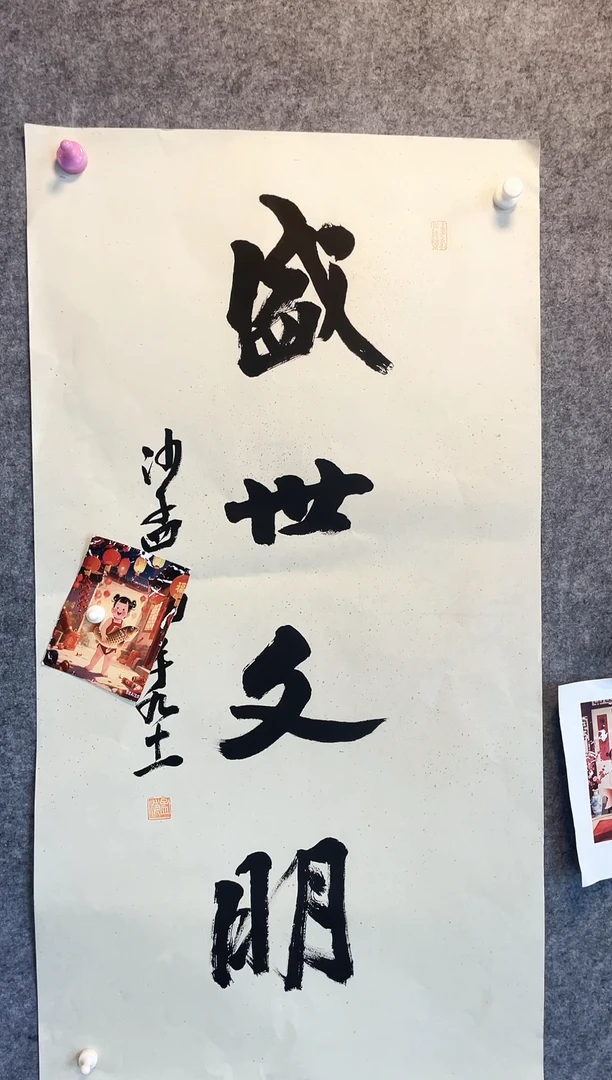 盛世文明
沙孟年九十一